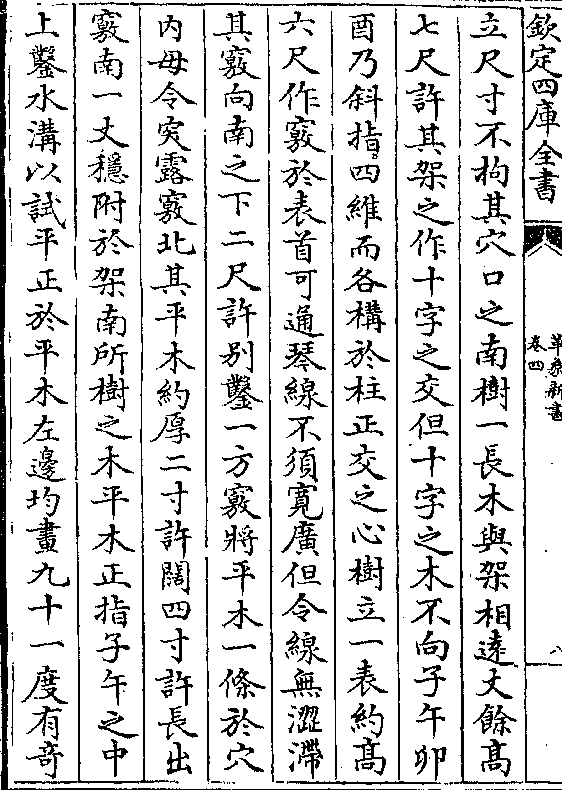 欽定四庫全書
革象新書
卷四
八
立尺寸不拘其穴口之南樹一長木與架相逺丈餘髙
七尺許其架之作十字之交但十字之木不向子午卯
酉乃斜指四維而各構於柱正交之心樹立一表約髙
六尺作竅於表首可通琴線不須寛廣但令線無澀滯
其竅向南之下二尺許别鑿一方竅將平木一條於穴
内毋令突露竅北其平木約厚二寸許闊四寸許長出
竅南一丈穏附於架南所樹之木平木正指子午之中
上鑿水溝以試平正於平木左邊均畫九十一度有奇